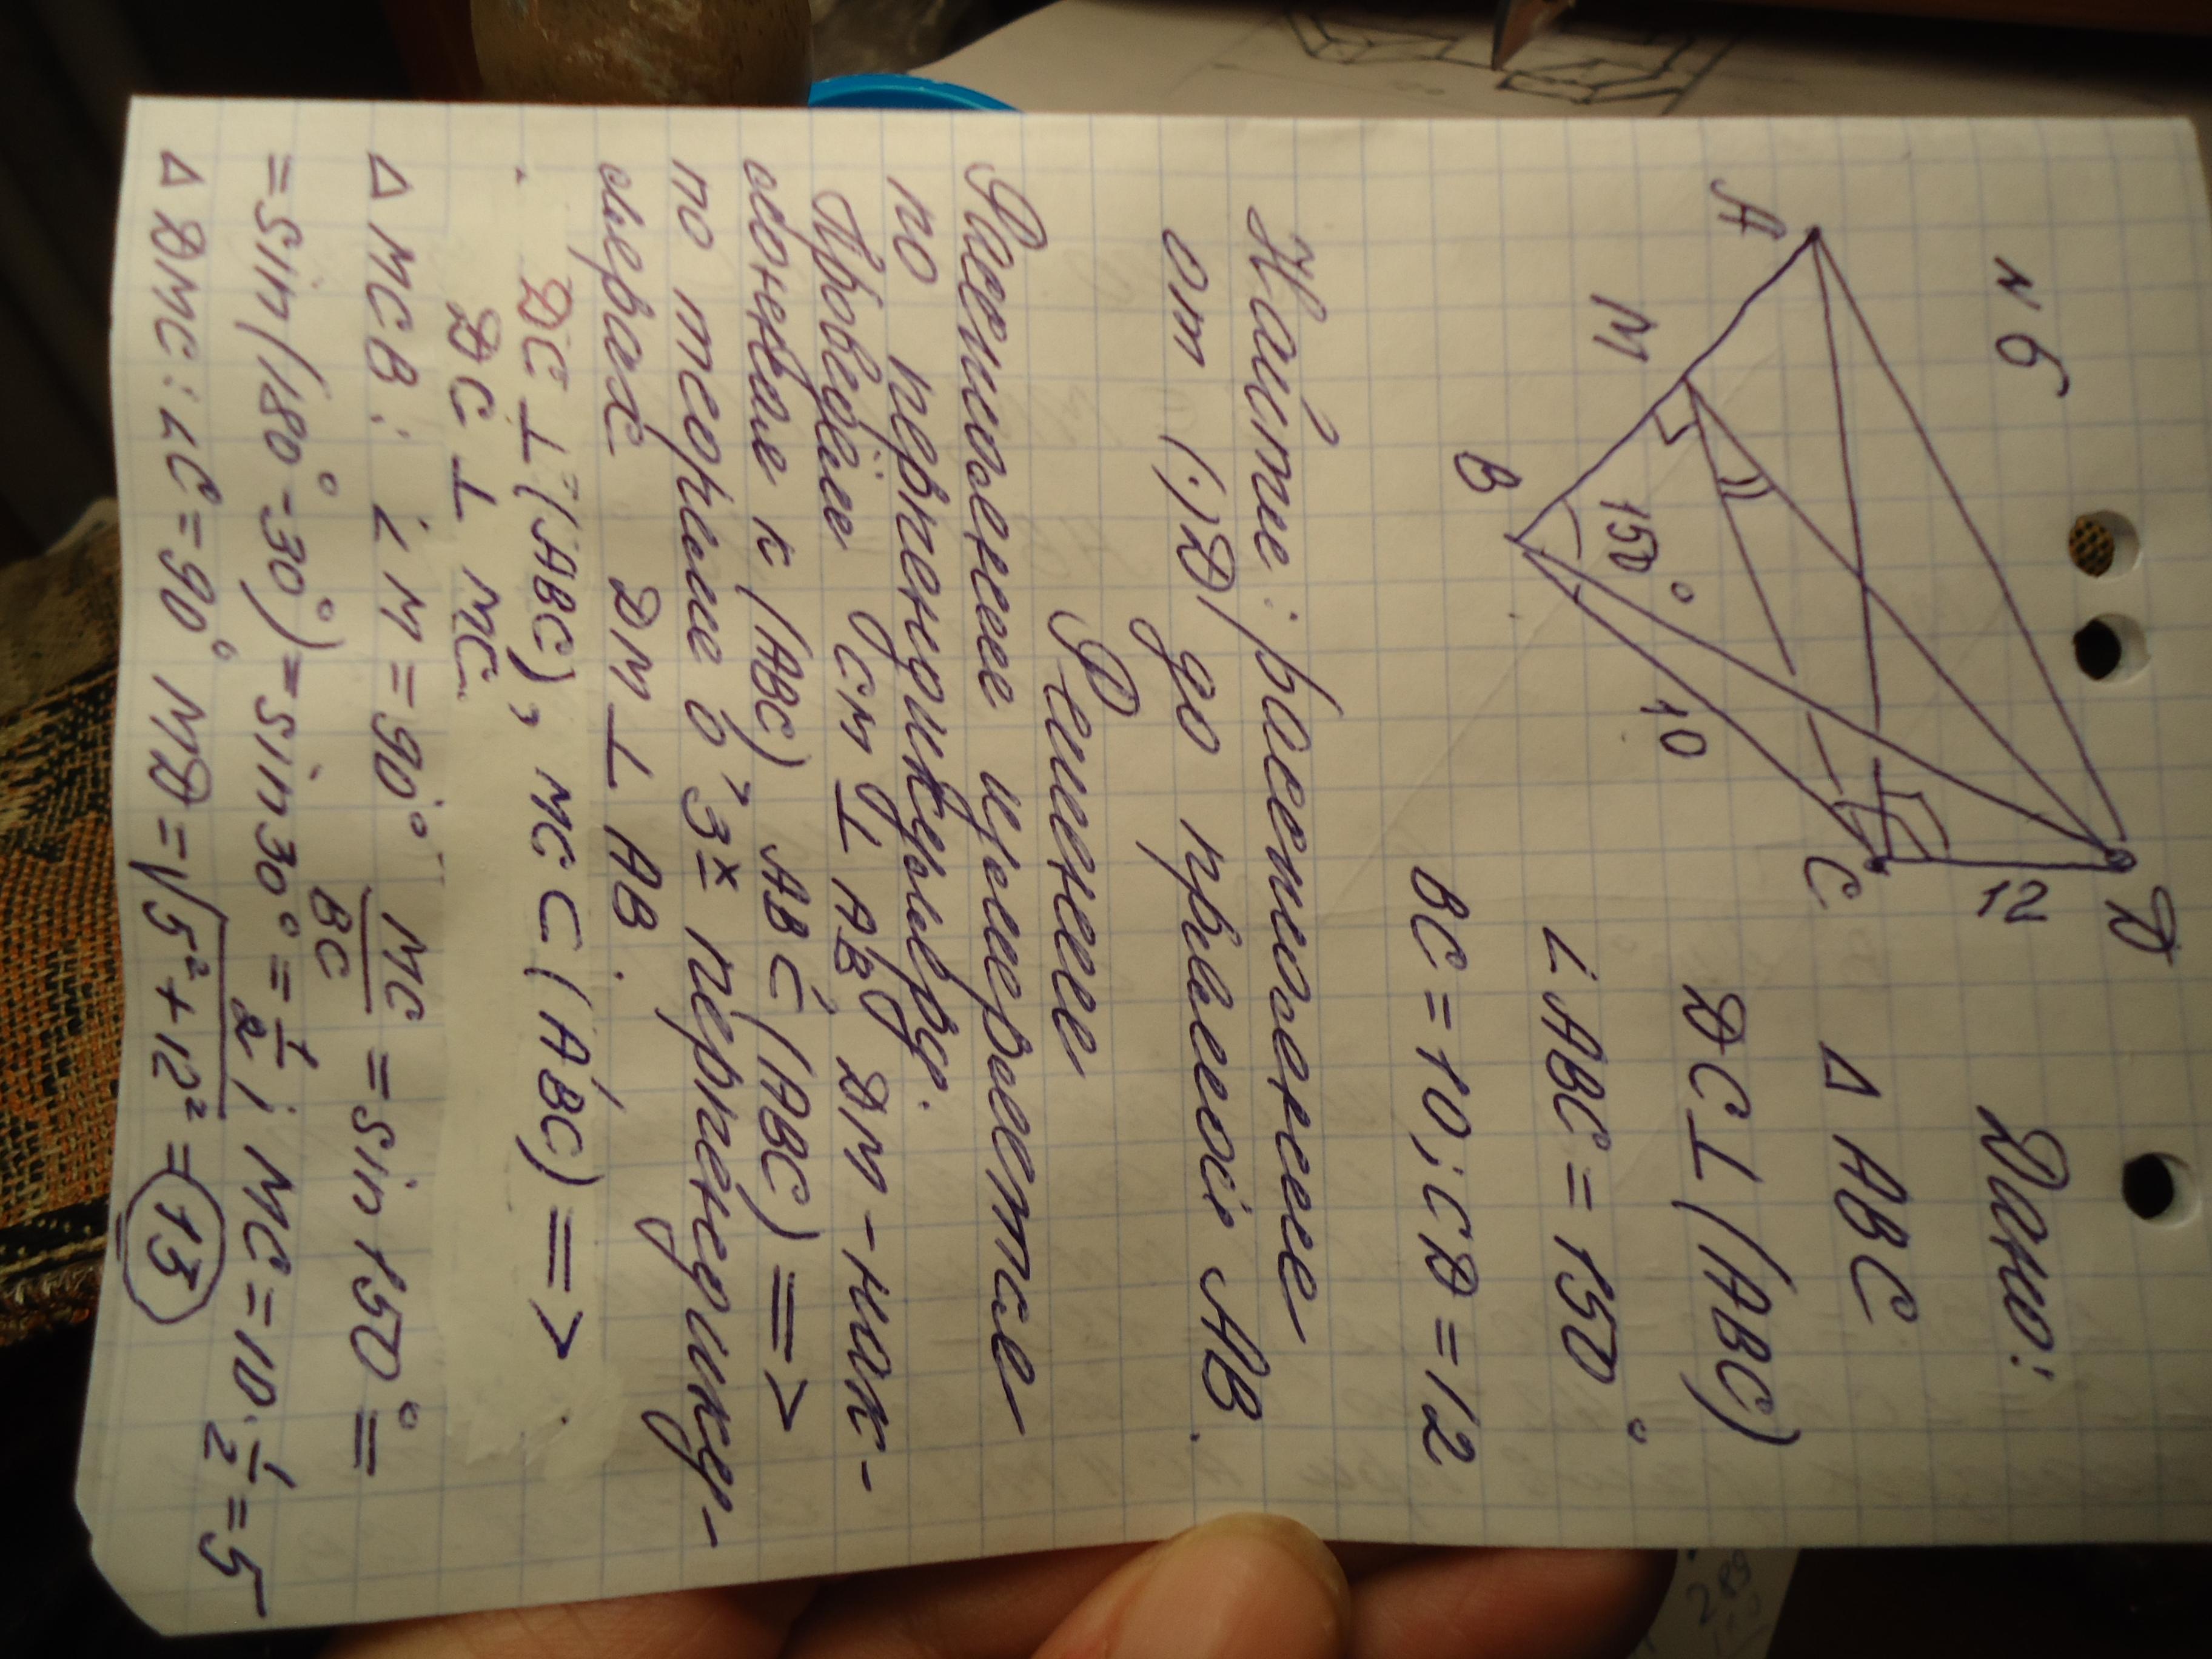 N 6
Дано:
△ ABC
DC ⊥ (ABC)
∠ ABC = 150°
BC = 10; CD = 12
A
M
B
150°
10
C
12
D
Найти: расстояние
от (·) D до прямой AB.
Решение
Расстояние измеряется
по перпендикуляру.
Проведём CM ⊥ AB, DM - нак-
лонная к (ABC) AB ⊂ (ABC) =>
по теореме о 3х перпендикуля-
лярах DM ⊥ AB.
DC ⊥ (ABC), MC ⊂ (ABC) =>
DC ⊥ MC.
△ MCB: ∠ M = 90° MC/BC = sin 150° =
= sin (180° - 30°) = sin 30° = 1/2; MC = 10 · 1/2 = 5
△ DMC: ∠C = 90° MD = √5² + 12² = 13